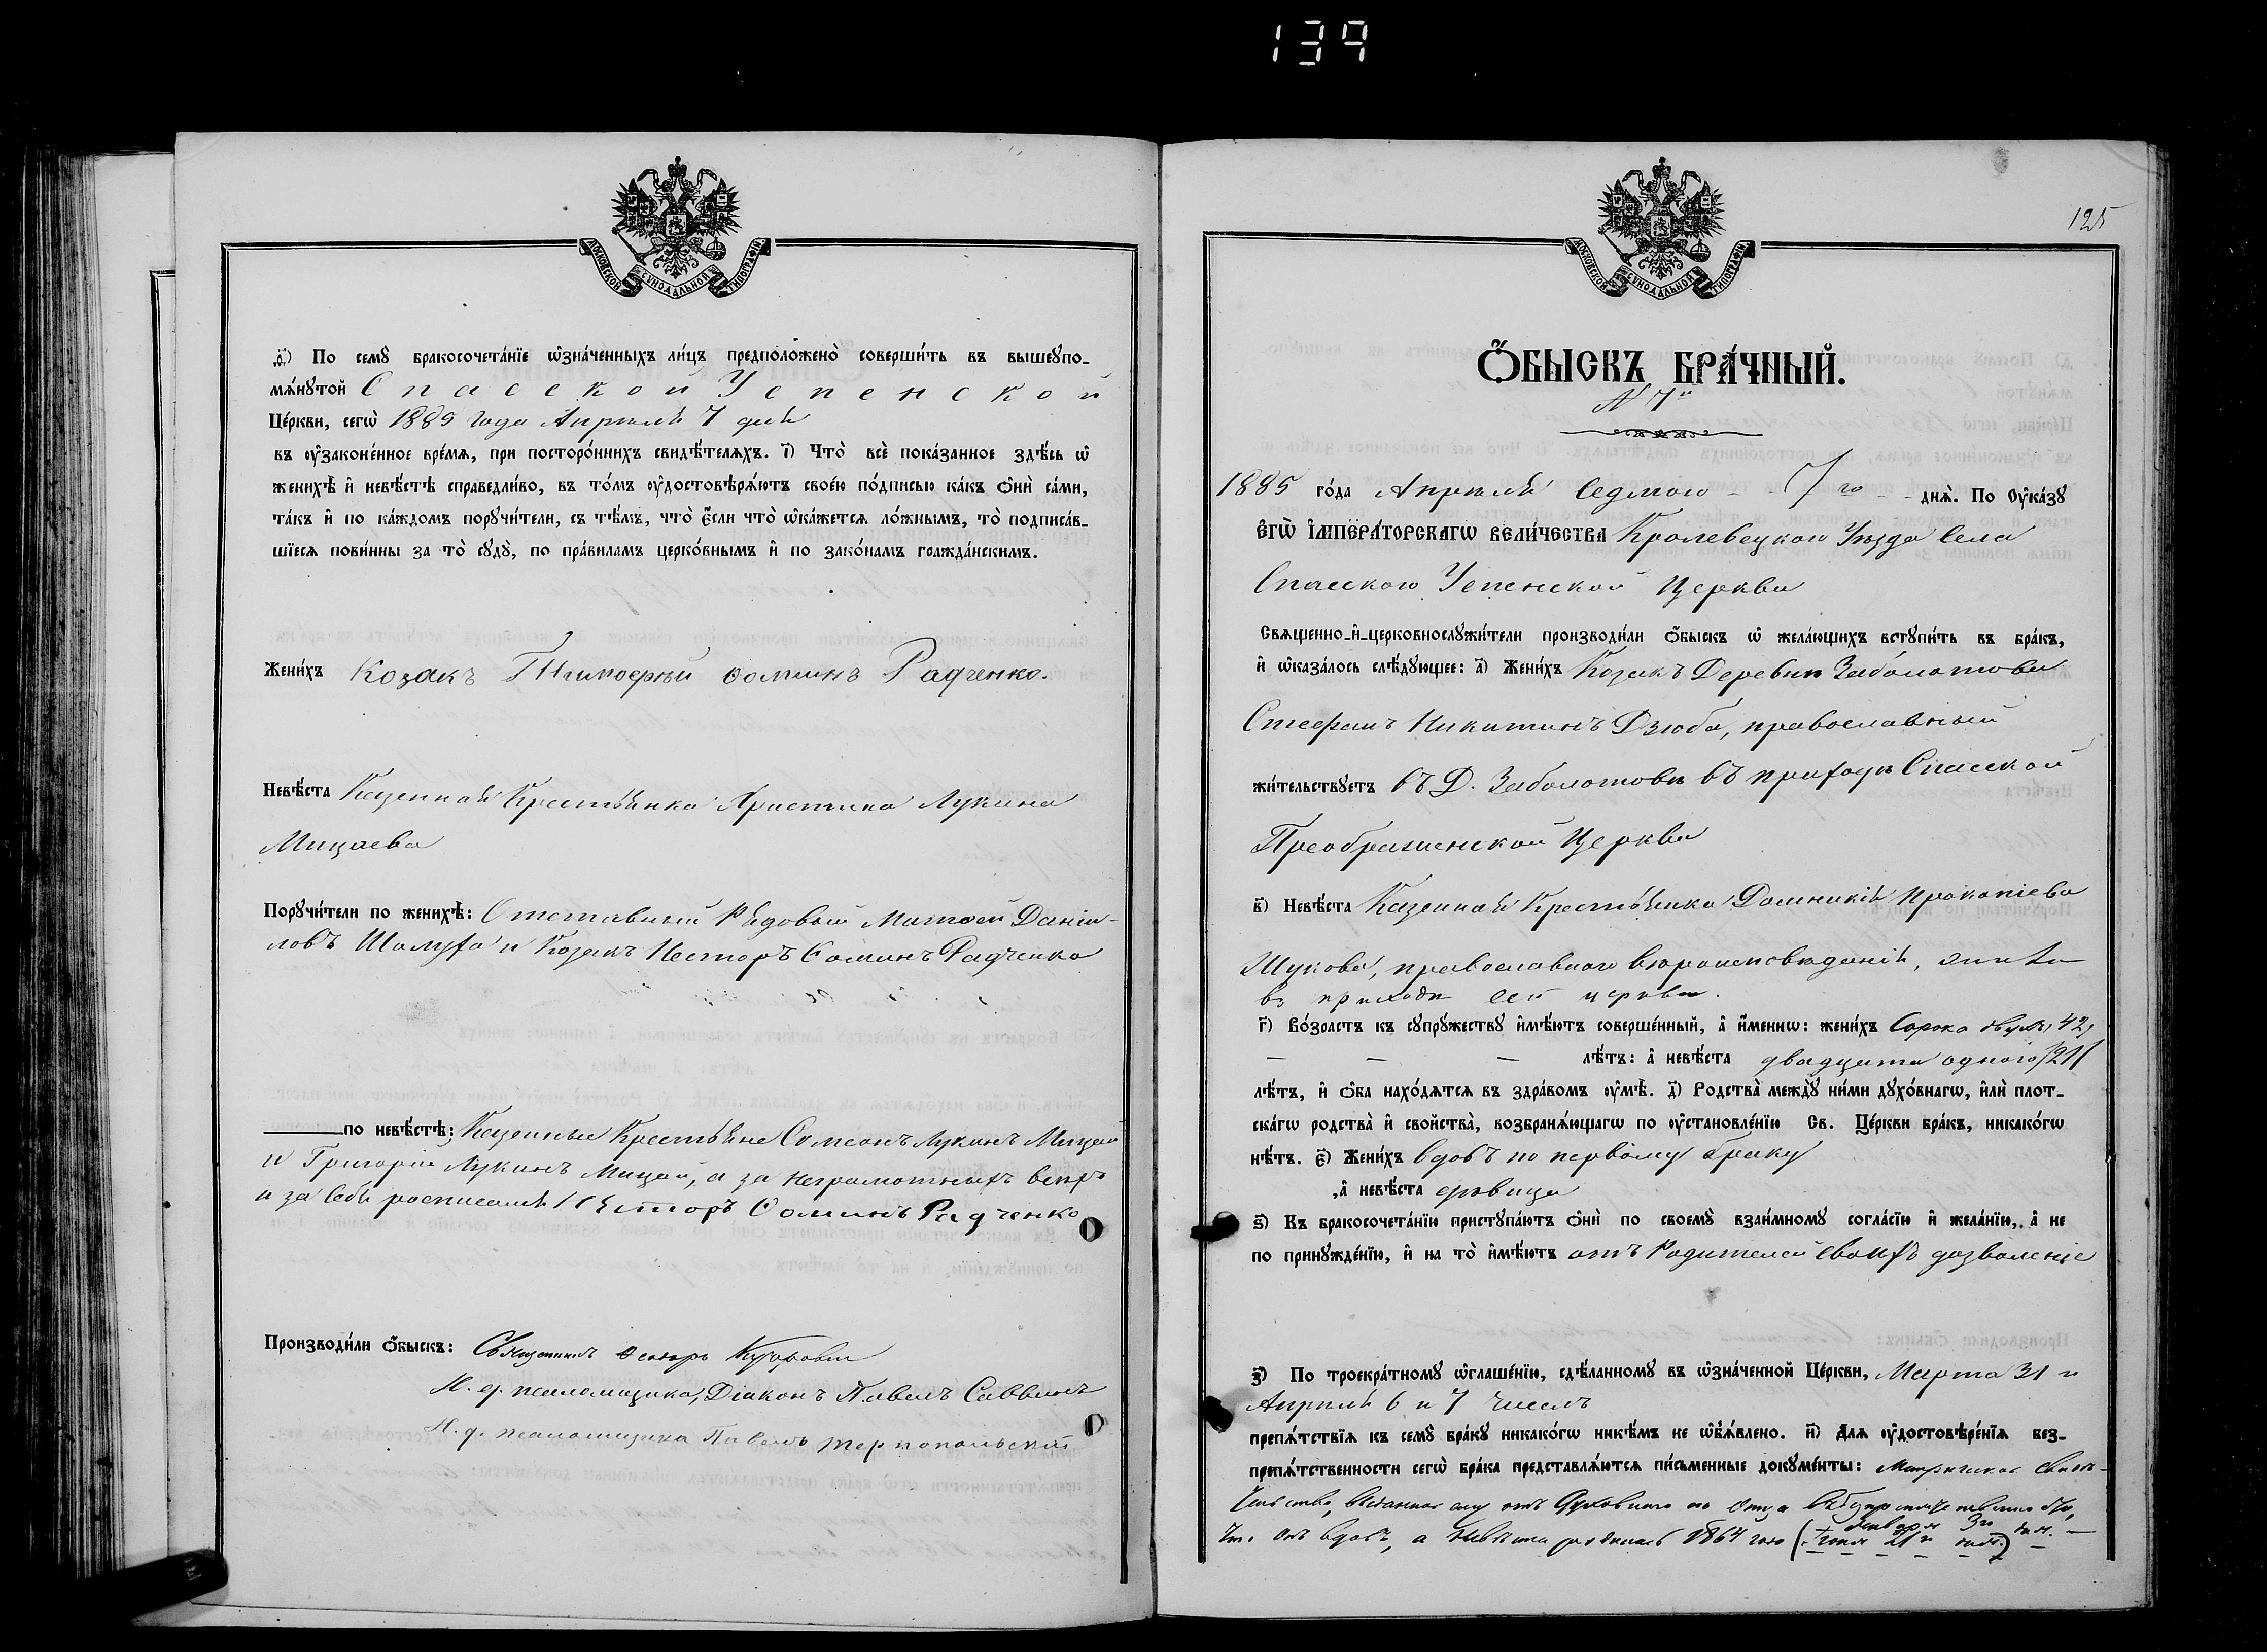 139
МОСКОВСКОЙ СѴНОДАЛЬНОЙ ТИПОГРАФІИ
д҃і) По семꙋ̀ бракосочета́нїе ѡ҆зна́ченныхъ ли́цъ предполо́жено соверши́ть въ вышеꙋпо-
мѧ́нꙋтой Спасской Успенской
Це́ркви, сегѡ̀ 1885 года Апрѣля 7 дня
въ ᲂу҆законе́нное вре́мѧ, при посторо́ннихъ свидѣ́телѧхъ. і҃) Что̀ всѐ пока́занное здѣ́сь ѡ҆
женихѣ̀ и҆ невѣ́стѣ справедли́во, въ то́мъ ᲂу҆достовѣрѧ́ютъ свое́ю по́дписью ка́къ ѻ҆нѝ са́ми,
та́къ и҆ по ка́ждомъ порꙋчи́тели, съ тѣ́мъ, что̀ є҆́сли что̀ ѡ҆ка́жетсѧ ло́жнымъ, то̀ подписа́в-
шїесѧ пови́нны за то̀ сꙋдꙋ̀, по пра́виламъ церко́внымъ и҆ по зако́намъ гражда́нскимъ.
Жени́хъ Козакъ Тимоѳѣй Ѳоминъ Радченко.
Невѣ́ста Казенная Крестьянка Христина Лукина
Мицаева
Порꙋчи́тели по женихѣ̀: Отставный Рядовый Матѳей Даніи-
ловъ Шолуха и Козакъ Несторъ Ѳоминъ Радченко
по невѣ́стѣ: Казенные Крестьяне Симеонъ Лукинъ Мицай
и Григорій Лукинъ Мицай, а за неграмотныхъ всѣхъ
и за себя росписался Несторъ Ѳоминъ Радченко
Производи́ли ѻ҆́быскъ: Священникъ
И. д. псаломщика, Діаконъ Павелъ Саввинъ
И. д. псаломщика Павелъ Тернопольскій
125
МОСКОВСКОЙ СѴНОДАЛЬНОЙ ТИПОГРАФІИ
Ѻ҆́БЫСКЪ БРА́ЧНЫЙ.
N 7й
1885 го́да Апрѣля седмого - 7го - - днѧ̀. По Оу҆ка́зꙋ
Є҆ГѠ̀ И҆МПЕРА́ТОРСКАГѠ ВЕЛИ́ЧЕСТВА Кролевецкого Уѣзда села
Спасского Успенской Церкви
Свѧщенно-и҆-церковнослꙋжи́тели производи́ли ѻ҆́быскъ ѡ҆ жела́ющихъ встꙋпи́ть въ бра́къ,
и҆ ѡ҆каза́лось слѣ́дꙋющее: а҃) Жени́хъ Козакъ Деревни Заболотови
Стефанъ Никитинъ Дзюба, православный
жи́тельствꙋетъ въ Д. Заболотовѣ въ приходѣ Спасской
Преображенской Церкви
в҃) Невѣ́ста Казенная Крестьянка Домникія Прокопіева
Жукова, православного вѣроисповѣданія,
въ приходѣ сей церкви.
г҃) Во́зрастъ къ сꙋпрꙋ́жествꙋ и҆мѣ́ютъ соверше́нный, а҆ и҆́меннѡ: жени́хъ Сорока двухъ, 42,
лѣ́тъ: а҆ невѣ́ста двадцати одного /21/
лѣ́тъ, и҆ ѻ҆́ба нахо́дѧтсѧ въ здра́вомъ ᲂу҆мѣ̀. д҃) Родства̀ междꙋ̀ ни́ми дꙋхо́внагѡ, и҆лѝ плот-
ска́гѡ родства̀ и҆ сво́йства, возбранѧ́ющагѡ по ᲂу҆становле́нїю Св. Це́ркви бра́къ, никако́гѡ
нѣ́тъ. є҃) Жени́хъ вдовъ по первому браку
, а҆ невѣ́ста дѣвица
ѕ҃) Къ бракосочета́нїю пристꙋпа́ютъ ѻ҆нѝ по своемꙋ̀ взаи́мномꙋ согла́сїю и҆ жела́нїю, а҆ не
по принꙋжде́нїю, и҆ на то̀ и҆мѣ́ютъ отъ Родителей своихъ дозволеніе
з҃) По троекра́тномꙋ ѡ҆глаше́нїю, сдѣ́ланномꙋ въ ѡ҆зна́ченной Це́ркви, Марта 31 и
Апрѣля 6 и 7 чиселъ
препѧ́тствїѧ къ семꙋ̀ бра́кꙋ никако́гѡ никѣ́мъ не ѡ҆б̾ѧ́влено. и҃) Длѧ ᲂу҆достовѣре́нїѧ без-
препѧ́тственности сегѡ̀ бра́ка представлѧ́ютсѧ пи́сьменные докꙋме́нты: Метрическое свидѣ-
тельство, выданное ему отъ
что онъ вдовъ, а невѣста родилась 1864 года